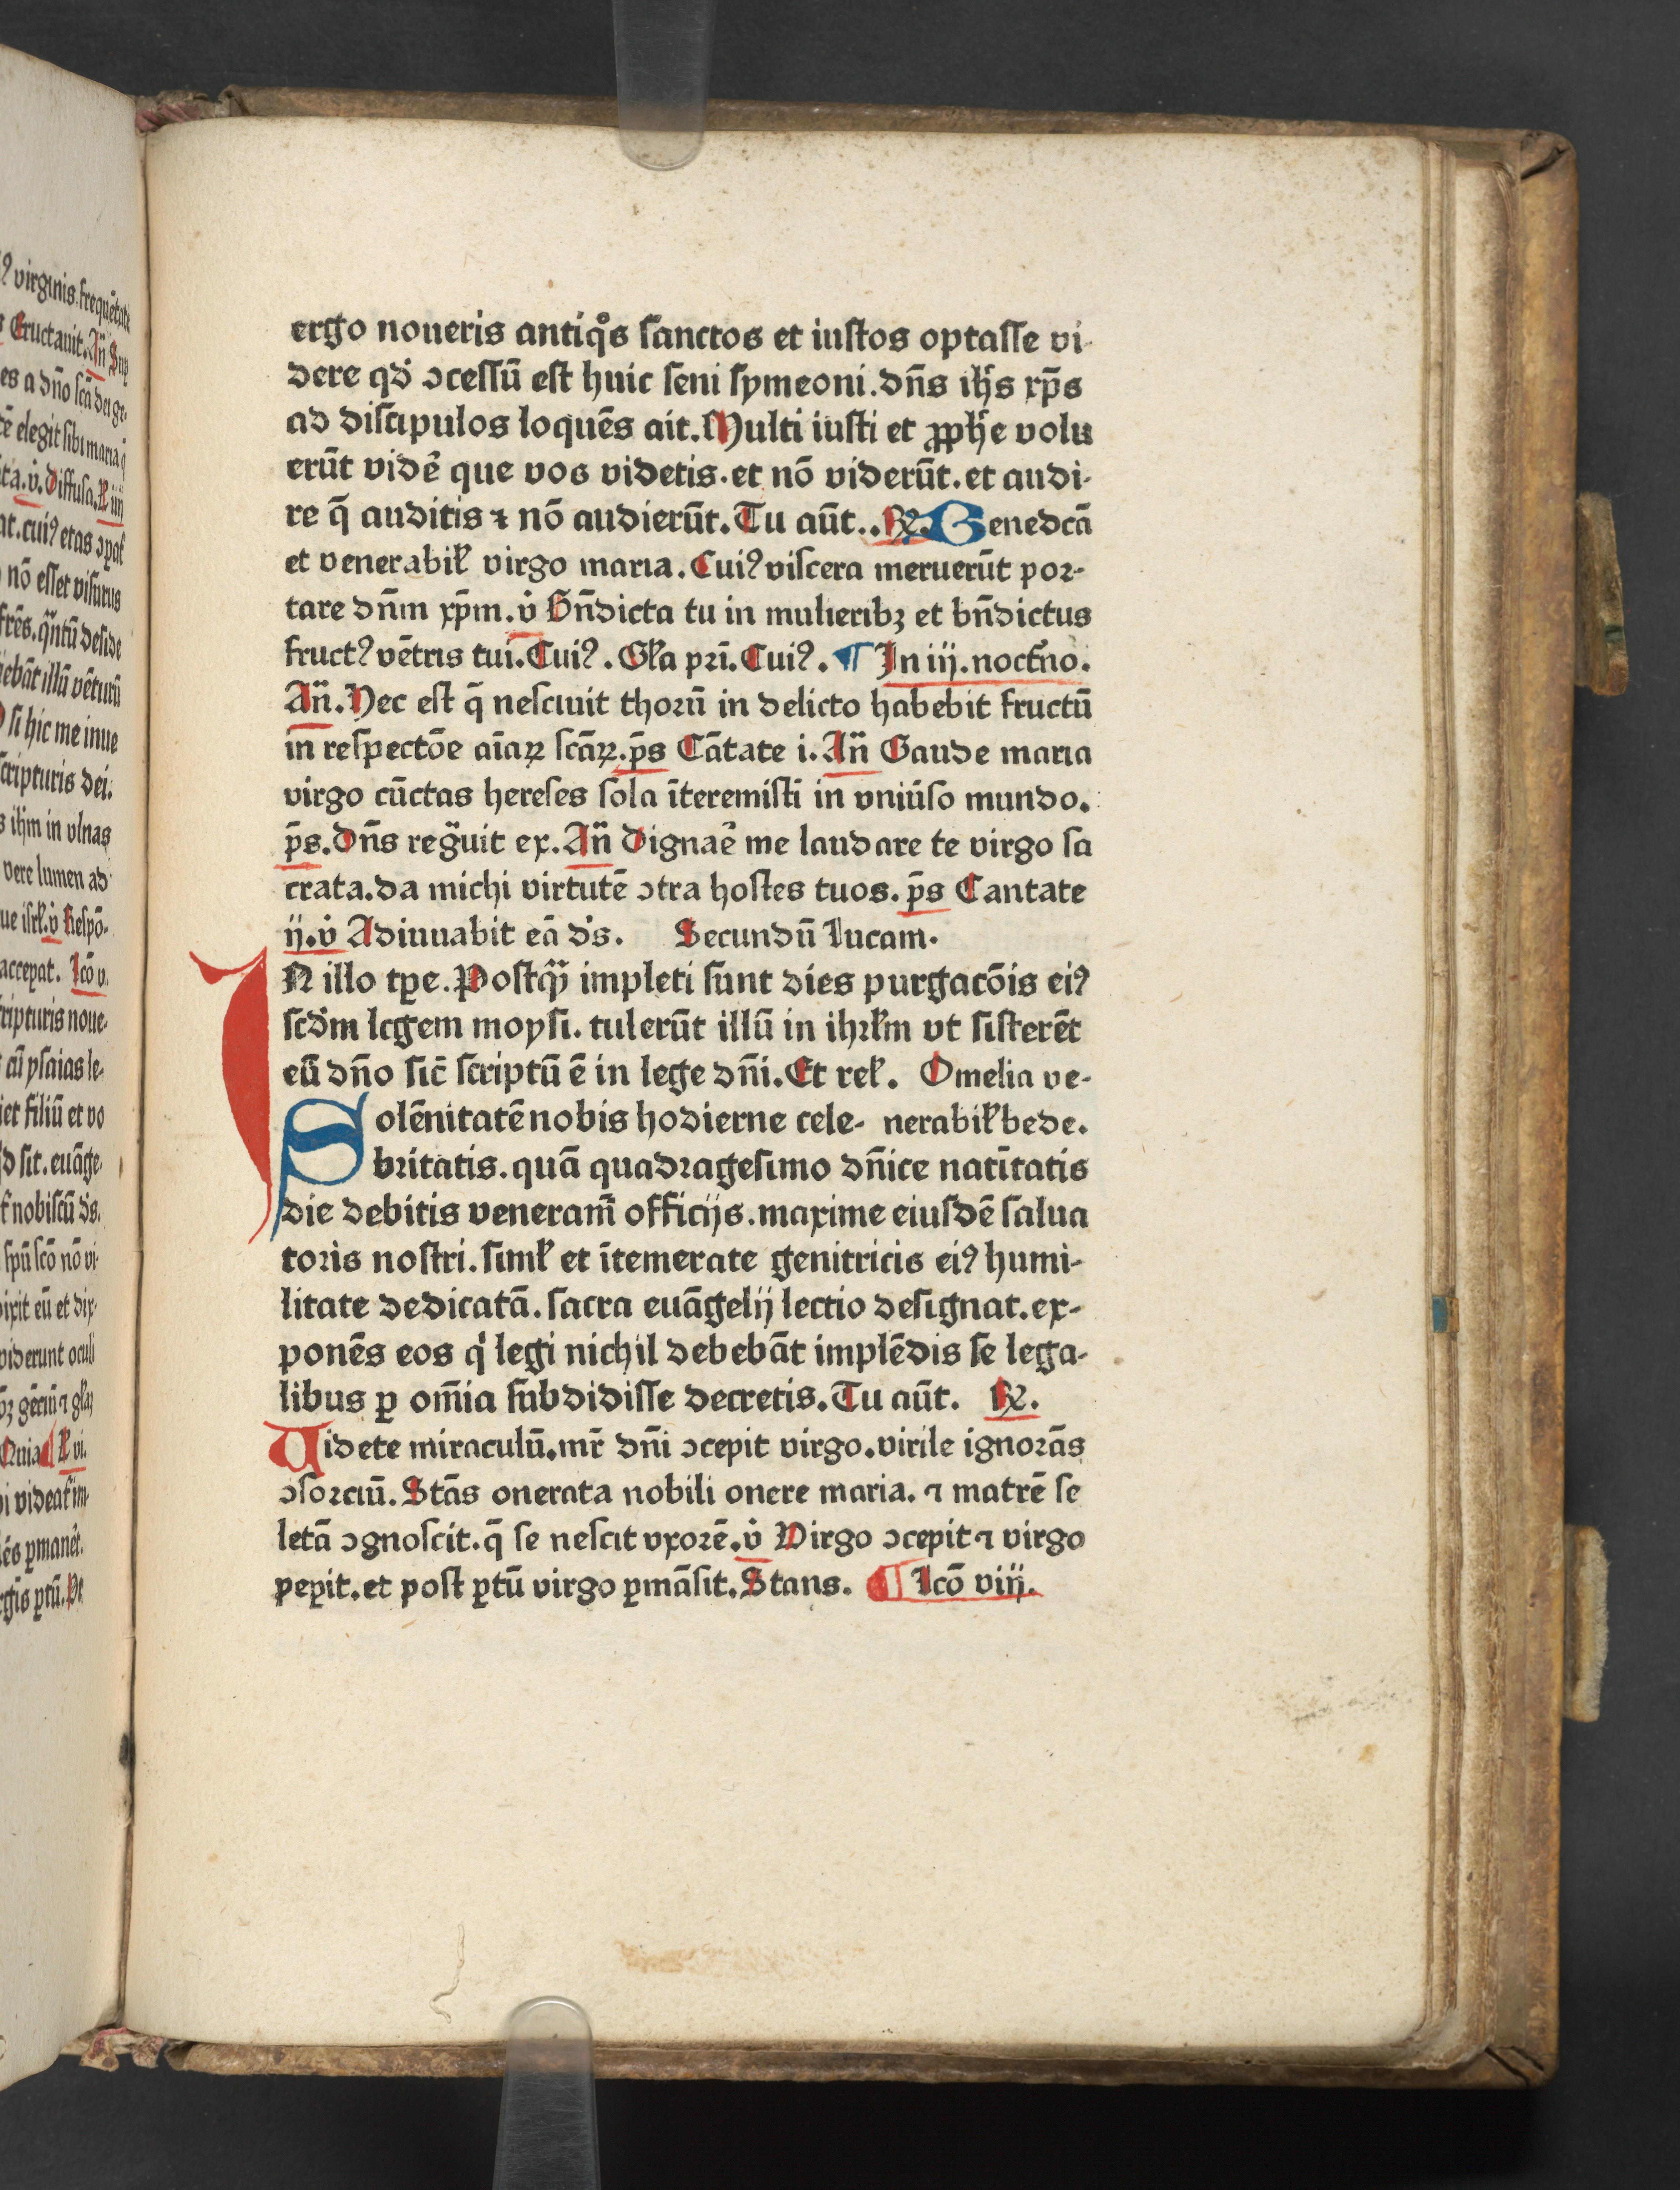 ꝰ virginis. frequētate
Eructauit. An̄ Sup
es a dn̄o scā dei ge-
elegit sibi maria
v̇. Diffusa. R iiij
at. cuiꝰ etas ↄpat
nō esset visurus
frēs. qn̄tū deside
iebāt illū vētuū
si hic me inue
scripturis dei.
ihm in vlnas
vere lumen ad
ue isrl. v̇ Respō-
accepat. Lcō v.
cripturis noue-
cū ysaias le-
iet filiū et vo
sit. euāge-
nobiscū ds.
spū scō nō vi-
dixit eū et dix-
viderunt oculi
Quia R vi.
videat im-
pmanēt.
ptū.
ergo noueris antiqͦs sanctos et iustos optasse vi-
dere qd̓ ↄcessū est huic seni symeoni. dn̄s ihs̄ xp̄s
ad discipulos loquēs ait. Multi iusti et ꝓph̄e volu
erūt vidē que vos videtis. et nō viderūt. et audi-
re q̄ auditis ⁊ nō audierūt. Tu aūt.. ℞. Benedcā
et venerabil̄ virgo maria. Cuiꝰ viscera meruerūt por-
tare dn̄m xp̄m. v̇ Bn̄dicta tu in mulieribꝫ et bn̄dictus
fructꝰ vētris tui. Cuiꝰ. Gl̄a pri. Cuiꝰ. ¶ In iij. noct̄no.
An̄. Hec est q̄ nesciuit thorū in delicto habebit fructū
in respectōe aīaꝝ scāꝝ. p̄s Cātate i. An̄ Gaude maria
virgo cūctas hereses sola īteremisti in vniūso mundo.
p̄s. Dn̄s regͣuit ex. An̄ Dignaē me laudare te virgo sa
crata. da michi virtutē ↄtra hostes tuos. p̄s Cantate
ij. v̇ Adiuuabit eā ds̓. Secundū Lucam.
IN illo tꝑe. Postqͣꝫ impleti sunt dies purgatōis eiꝰ
scd̓m legem moysi. tulerūt illū in ihrl̄m vt sisterēt
eū dn̄o sic̄ scriptū ē in lege dn̄i. Et rel̄. Omelia ve-
Solēnitatē nobis hodierne cele- nerabil̄ bede.
britatis. quā quadragesimo dn̄ice natītatis
die debitis veneram̄ officijs. maxime eiusdē salua
toris nostri. siml̄ et ītemerate genitricis eiꝰ humi-
litate dedicatā. sacra euāgelij lectio designat. ex-
ponēs eos qͥ legi nichil debebāt implēdis se lega-
libus ꝑ om̄ia subdidisse decretis. Tu aūt. ℞.
Uidete miraculū. mr̄ dn̄i ↄcepit virgo. virile ignorās
ↄsorciū. Stās onerata nobili onere maria. ⁊ matrē se
letā ↄgnoscit. q̄ se nescit vxorē. v̇ Virgo ↄcepit ⁊ virgo
peꝑit. et post ꝑtū virgo ꝑmāsit. Stans. ¶ Lcō viij.